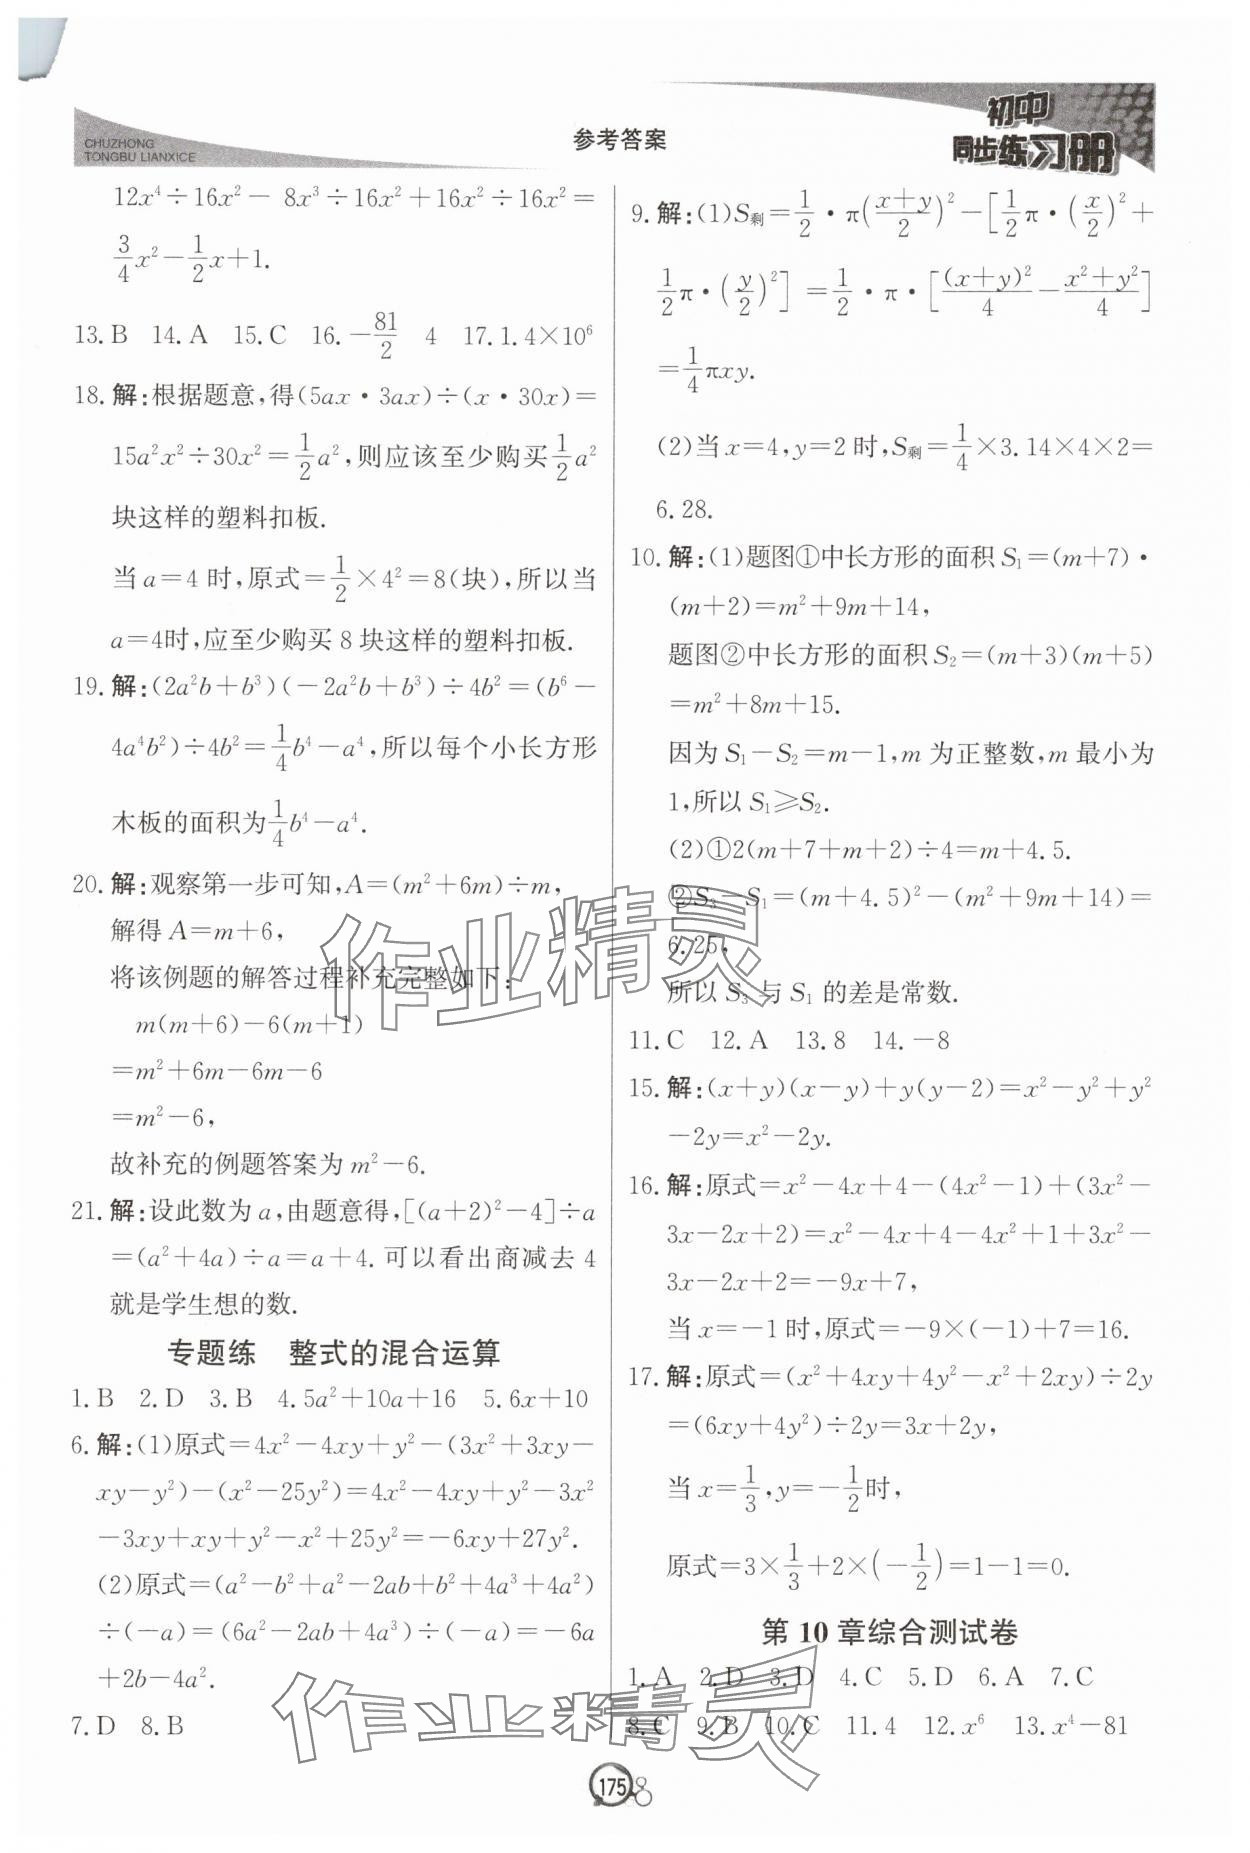 CHUZHONG
TONGBU LIANXICE
参考答案
初中
同步练习册
12x⁴÷16x²－8x³÷16x²＋16x²÷16x²＝
3/4x²－1/2x＋1.
13. B 14. A 15. C 16. －81/2 4 17. 1.4×10⁶
18. 解:根据题意,得(5ax·3ax)÷(x·30x)＝
15a²x²÷30x²＝1/2a²,则应该至少购买1/2a²
块这样的塑料扣板.
当a＝4时,原式＝1/2×4²＝8(块),所以当
a＝4时,应至少购买8块这样的塑料扣板.
19. 解:(2a²b＋b³)(－2a²b＋b³)÷4b²＝(b⁶－
4a⁴b²)÷4b²＝1/4b⁴－a⁴,所以每个小长方形
木板的面积为1/4b⁴－a⁴.
20. 解:观察第一步可知,A＝(m²＋6m)÷m,
解得A＝m＋6,
将该例题的解答过程补充完整如下:
m(m＋6)－6(m＋1)
＝m²＋6m－6m－6
＝m²－6,
故补充的例题答案为m²－6.
21. 解:设此数为a,由题意得,[(a＋2)²－4]÷a
＝(a²＋4a)÷a＝a＋4.可以看出商减去4
就是学生想的数.
专题练 整式的混合运算
1. B 2. D 3. B 4. 5a²＋10a＋16 5. 6x＋10
6. 解:(1)原式＝4x²－4xy＋y²－(3x²＋3xy－
xy－y²)－(x²－25y²)＝4x²－4xy＋y²－3x²
－3xy＋xy＋y²－x²＋25y²＝－6xy＋27y².
(2)原式＝(a²－b²＋a²－2ab＋b²＋4a³＋4a²)
÷(－a)＝(6a²－2ab＋4a³)÷(－a)＝－6a
＋2b－4a².
7. D 8. B
9. 解:(1)S剩＝1/2·π((x＋y)/2)²－[1/2π·(x/2)²＋
1/2π·(y/2)²]＝1/2·π·[(x＋y)²/4－(x²＋y²)/4]
＝1/4πxy.
(2)当x＝4,y＝2时,S剩＝1/4×3.14×4×2＝
6.28.
10. 解:(1)题图①中长方形的面积S₁＝(m＋7)·
(m＋2)＝m²＋9m＋14,
题图②中长方形的面积S₂＝(m＋3)(m＋5)
＝m²＋8m＋15.
因为S₁－S₂＝m－1,m为正整数,m最小为
1,所以S₁≥S₂.
(2)①2(m＋7＋m＋2)÷4＝m＋4.5.
②S₃－S₁＝(m＋4.5)²－(m²＋9m＋14)＝
6.25,
所以S₃与S₁的差是常数.
11. C 12. A 13. 8 14. －8
15. 解:(x＋y)(x－y)＋y(y－2)＝x²－y²＋y²
－2y＝x²－2y.
16. 解:原式＝x²－4x＋4－(4x²－1)＋(3x²－
3x－2x＋2)＝x²－4x＋4－4x²＋1＋3x²－
3x－2x＋2＝－9x＋7,
当x＝－1时,原式＝－9×(－1)＋7＝16.
17. 解:原式＝(x²＋4xy＋4y²－x²＋2xy)÷2y
＝(6xy＋4y²)÷2y＝3x＋2y,
当x＝1/3,y＝－1/2时,
原式＝3×1/3＋2×(－1/2)＝1－1＝0.
第10章综合测试卷
1. A 2. D 3. D 4. C 5. D 6. A 7. C
8. C 9. B 10. C 11. 4 12. x⁶ 13. x⁴－81
作业精灵
作业精灵
175